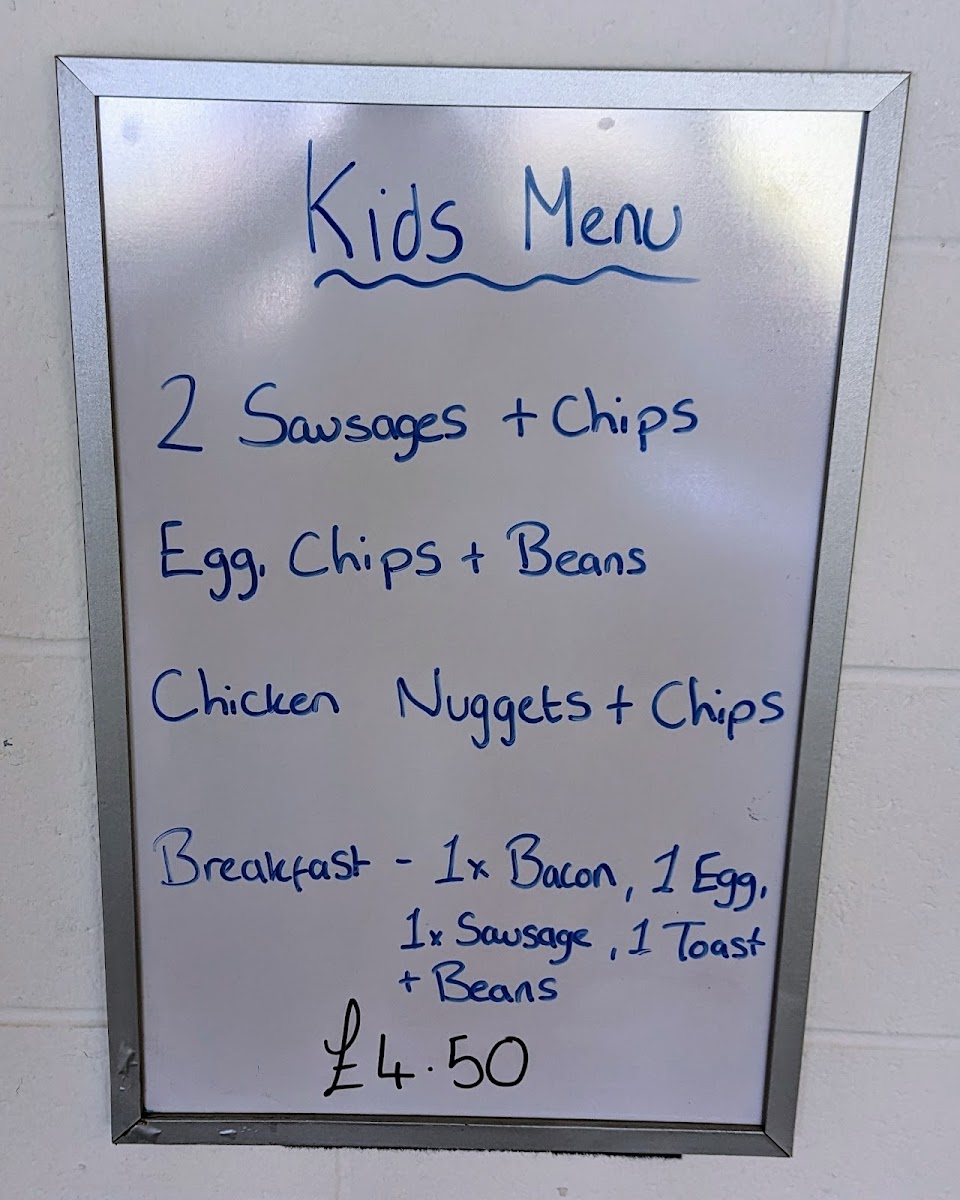 Kids Menu
2 Sausages + Chips
Egg, Chips + Beans
Chicken Nuggets + Chips
Breakfast - 1x Bacon, 1 Egg,
1x Sausage, 1 Toast
+ Beans
£4.50